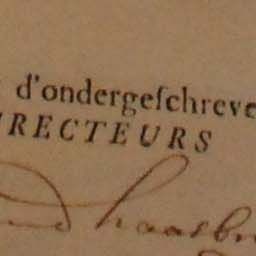 d'ondergeſchreve
RECTEURS
haasbr